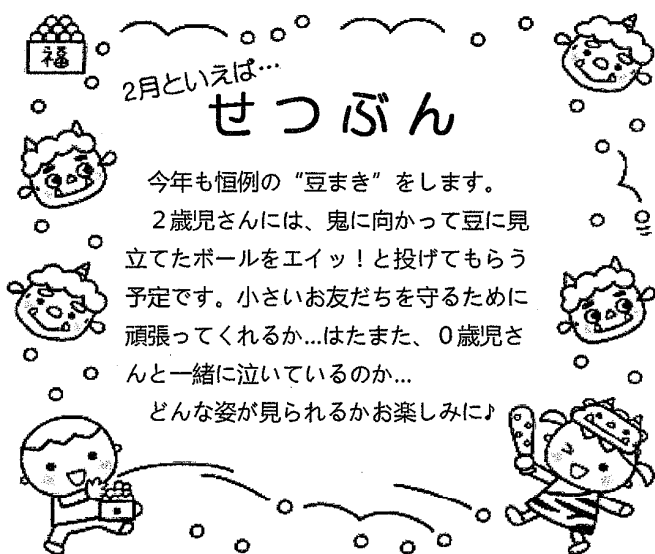 福
2月といえば…
せつぶん
今年も恒例の“豆まき”をします。
２歳児さんには、鬼に向かって豆に見
立てたボールをエイッ！と投げてもらう
予定です。小さいお友だちを守るために
頑張ってくれるか…はたまた、０歳児さ
んと一緒に泣いているのか…
どんな姿が見られるかお楽しみに♪